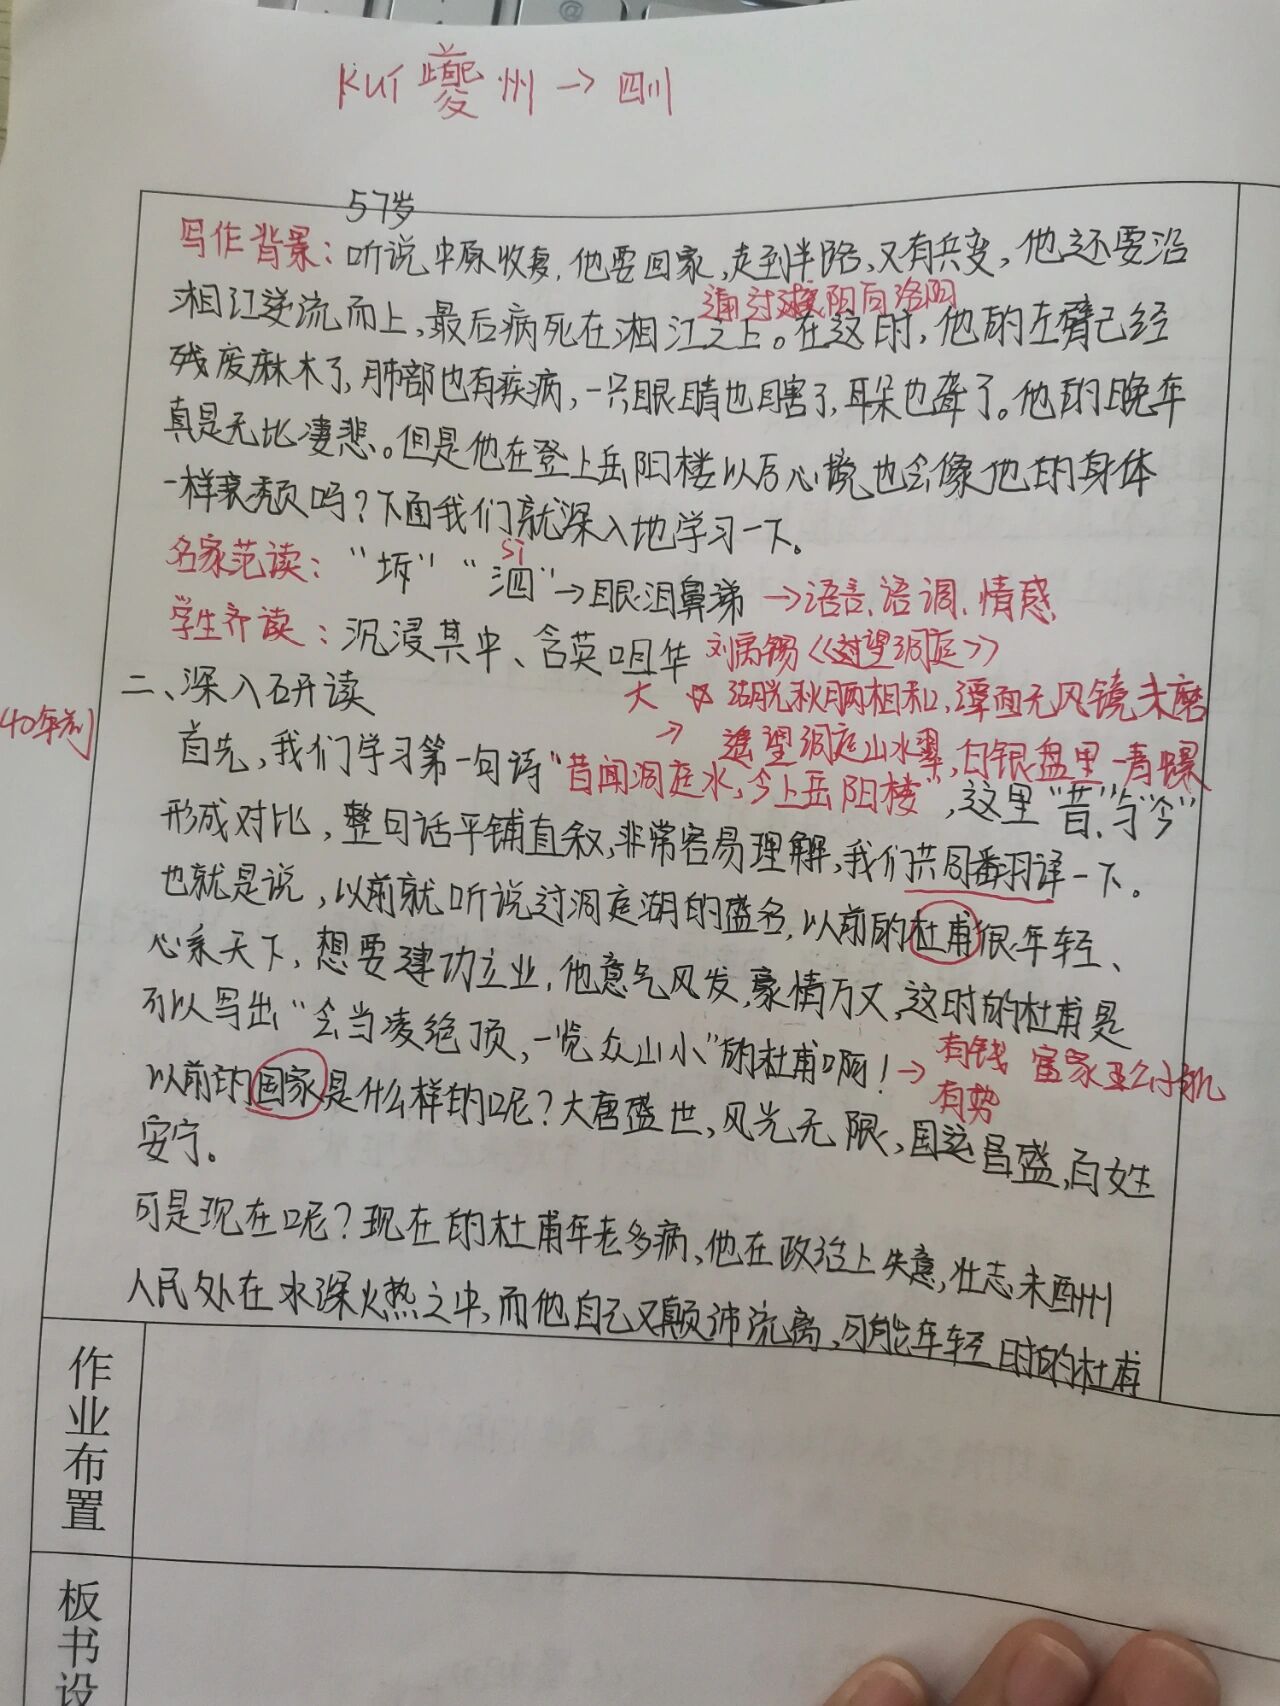 KUI 夔州→四川
57岁
写作背景：听说中原收复，他要回家，走到半路，又有兵变，他还要沿
通过襄阳向洛阳
湘江逆流而上，最后病死在湘江之上。在这时，他的左臂已经
残废麻木了，肺部也有疾病，一只眼睛也瞎了，耳朵也聋了。他的晚年
真是无比凄悲。但是他在登上岳阳楼以后心境也会像他的身体
一样衰颓吗？下面我们就深入地学习一下。
sì
名家范读：“坼”“泗”→眼泪鼻涕→语言、语调、情感
学生齐读：沉浸其中、含英咀华 刘禹锡《望洞庭》
二、深入研读 大 湖光秋月两相和，潭面无风镜未磨
40年前
→ 遥望洞庭山水翠，白银盘里一青螺
首先，我们学习第一句诗“昔闻洞庭水，今上岳阳楼”，这里“昔”与“今”
形成对比，整句话平铺直叙，非常容易理解，我们共同翻译一下。
也就是说，以前就听说过洞庭湖的盛名，以前的杜甫很年轻、
心系天下，想要建功立业，他意气风发，豪情万丈，这时的杜甫是
可以写出“会当凌绝顶，一览众山小”的杜甫啊！→有钱 富家
有势
以前的国家是什么样的呢？大唐盛世，风光无限，国运昌盛，百姓
安宁。
可是现在呢？现在的杜甫年老多病，他在政治上失意，壮志未酬
人民处在水深火热之中，而他自己又颠沛流离，可能年轻时的杜甫
作业布置
板书设